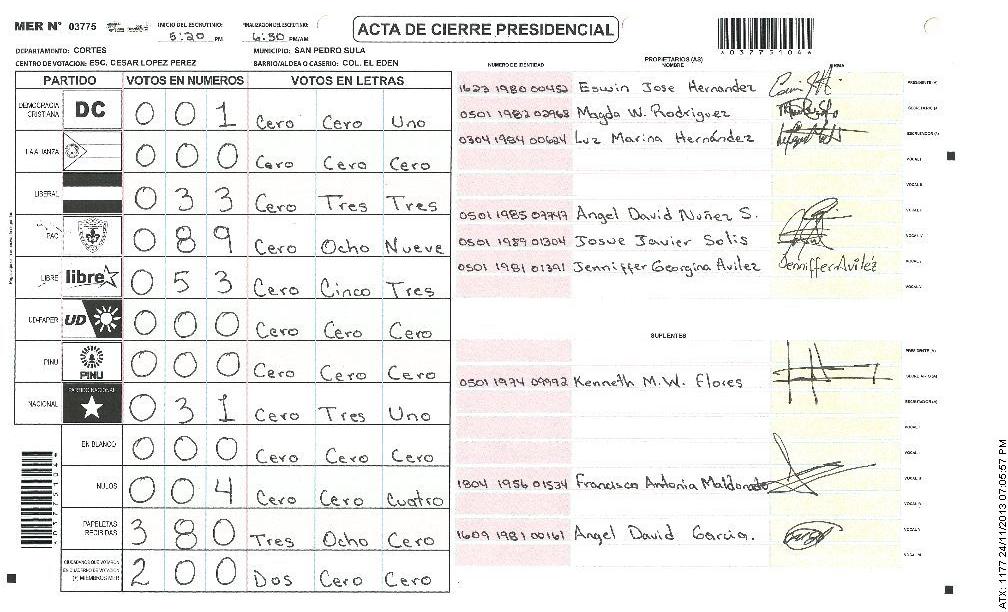 MER N° 03775
INICIO DEL ESCRUTINIO:
5:20 PM
FINALIZACION DEL ESCRUTINIO:
6:30 PM/AM
ACTA DE CIERRE PRESIDENCIAL
DEPARTAMENTO: CORTES
MUNICIPIO: SAN PEDRO SULA
CENTRO DE VOTACION: ESC. CESAR LOPEZ PEREZ
BARRIO/ALDEA O CASERIO: COL. EL EDEN
PARTIDO VOTOS EN NUMEROS VOTOS EN LETRAS
DEMOCRACIA CRISTIANA DC 0 0 1 Cero Cero Uno
0 0 0 Cero Cero Cero
LIBERAL 0 3 3 Cero Tres Tres
PAC 0 8 9 Cero Ocho Nueve
LIBRE libre 0 5 3 Cero Cinco Tres
UD-FAPER UD 0 0 0 Cero Cero Cero
PINU PINU 0 0 0 Cero Cero Cero
NACIONAL PARTIDO NACIONAL 0 3 1 Cero Tres Uno
EN BLANCO 0 0 0 Cero Cero Cero
NULOS 0 0 4 Cero Cero Cuatro
PAPELETAS RECIBIDAS 3 8 0 Tres Ocho Cero
CIUDADANOS QUE VOTARON EN CUADERNO DE VOTACION (+) MIEMBROS MER 2 0 0 Dos Cero Cero
NUMERO DE IDENTIDAD
PROPIETARIOS (AS)
NOMBRE
FIRMA
1623 1980 00452 Eswin Jose Hernandez PRESIDENTE (A)
0501 1982 02963 Magda W. Rodriguez SECRETARIO (A)
0304 1984 00624 Luz Marina Hernández ESCRUTADOR (A)
VOCAL I
VOCAL II
0501 1985 07747 Angel David Nuñez S.
0501 1989 01304 Josue Javier Solis
0501 1981 01391 Jenniffer Georgina Avilez Jenniffer Avilez
SUPLENTES
PRESIDENTE (A)
0501 1974 09992 Kenneth M.W. Flores SECRETARIO (A)
ESCRUTADOR (A)
VOCAL I
1804 1956 01534 Francisco Antonia Maldonado
1609 1981 00161 Angel David Garcia.
*03775104*
ATX: 1177 24/11/2013 07:05:57 PM